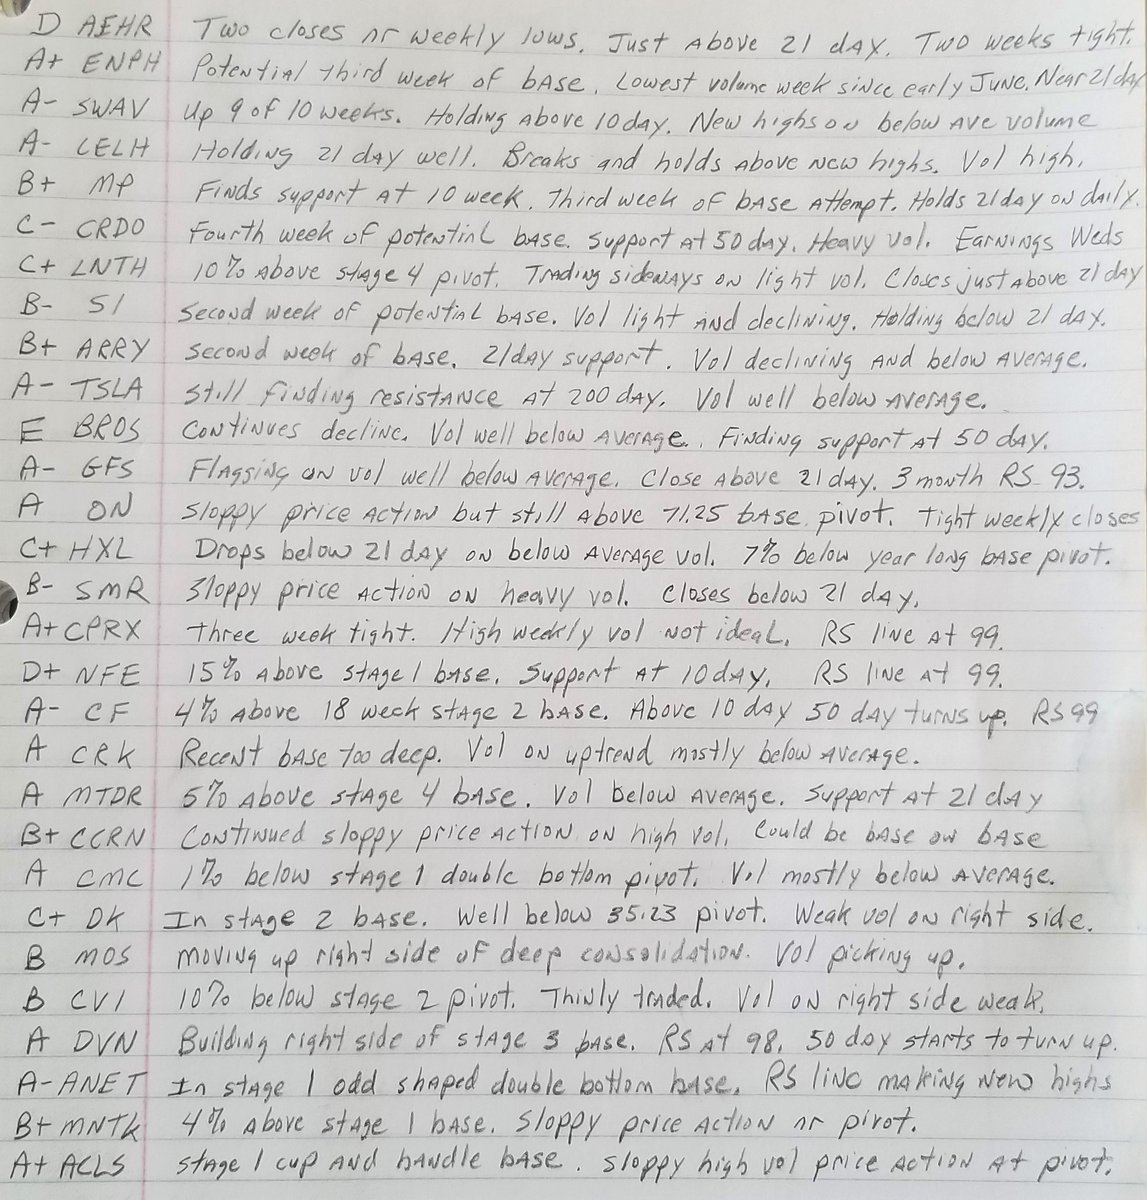 D AEHR Two closes nr weekly lows. Just above 21 day. Two weeks tight.
A+ ENPH Potential third week of base. Lowest volume week since early June. Near 21 day
A- SWAV Up 9 of 10 weeks. Holding above 10 day. New highs on below ave volume
A- CELH Holding 21 day well. Breaks and holds above new highs. Vol high.
B+ MP Finds support at 10 week. Third week of base attempt. Holds 21 day on daily.
C- CRDO Fourth week of potential base. Support at 50 day. Heavy vol. Earnings Weds
C+ LNTH 10% above stage 4 pivot. Trading sideways on light vol. Closes just above 21 day
B- SI Second week of potential base. Vol light and declining. Holding below 21 day.
B+ ARRY Second week of base. 21 day support. Vol declining and below average.
A- TSLA Still finding resistance at 200 day. Vol well below average.
E BROS Continues decline. Vol well below average. Finding support at 50 day.
A- GFS Flagging on vol well below average. Close above 21 day. 3 month RS 93.
A ON Sloppy price action but still above 71.25 base pivot. Tight weekly closes
C+ HXL Drops below 21 day on below average vol. 7% below year long base pivot.
B- SMR Sloppy price action on heavy vol. Closes below 21 day.
A+ CPRX Three week tight. High weekly vol not ideal. RS line at 99.
D+ NFE 15% above stage 1 base. Support at 10 day. RS line at 99.
A- CF 4% above 18 week stage 2 base. Above 10 day 50 day turns up. RS 99
A CRK Recent base too deep. Vol on uptrend mostly below average.
A MTDR 5% above stage 4 base. Vol below average. Support at 21 day
B+ CCRN Continued sloppy price action on high vol. Could be base on base
A CMC 1% below stage 1 double bottom pivot. Vol mostly below average.
C+ DK In stage 2 base. Well below 35.23 pivot. Weak vol on right side.
B MOS Moving up right side of deep consolidation. Vol picking up.
B CVI 10% below stage 2 pivot. Thinly traded. Vol on right side weak.
A DVN Building right side of stage 3 base. RS at 98. 50 day starts to turn up.
A- ANET In stage 1 odd shaped double bottom base. RS line making new highs
B+ MNTK 4% above stage 1 base. Sloppy price action nr pivot.
A+ ACLS Stage 1 cup and handle base. Sloppy high vol price action at pivot.